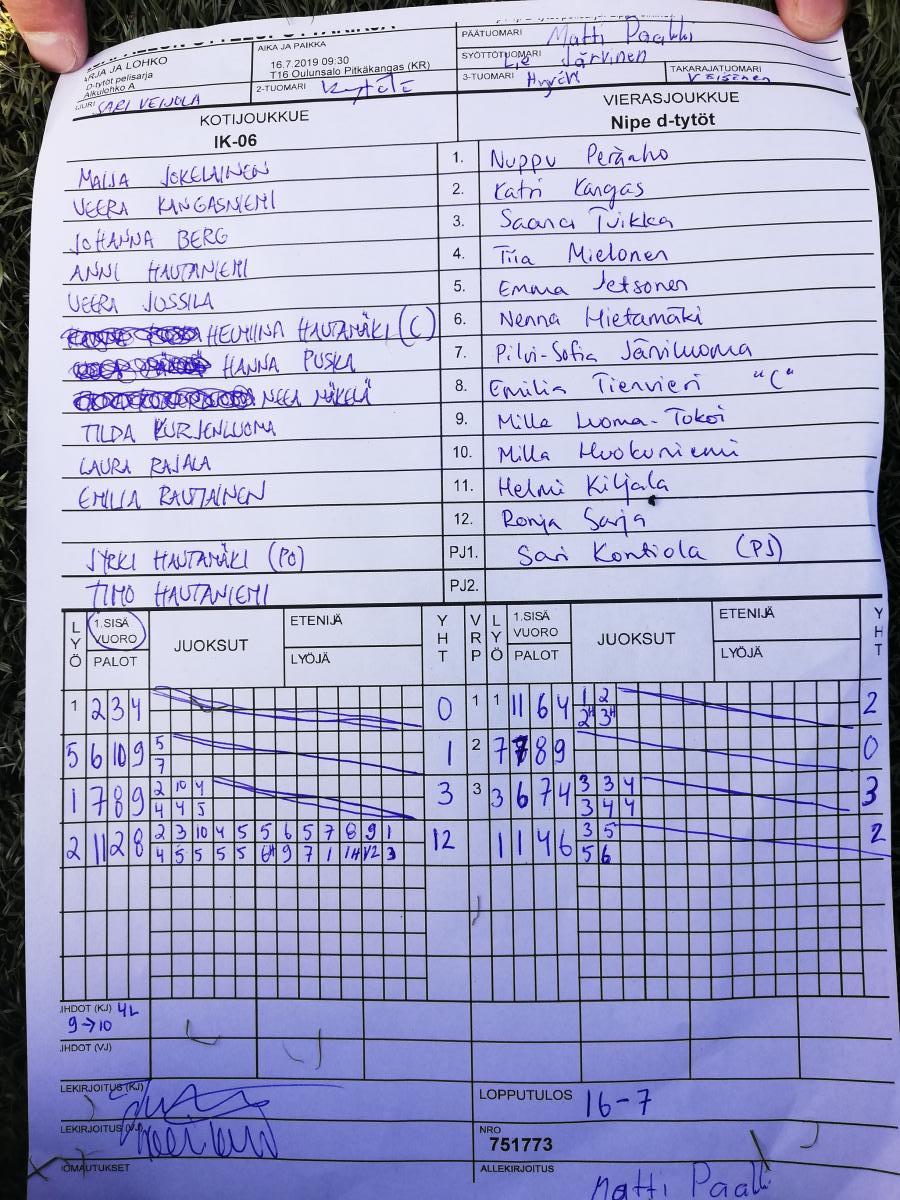 PÄÄTUOMARI Matti Paalli
ARJA JA LOHKO
D-tytöt pelisarja
Alkulohko A
AIKA JA PAIKKA
16.7.2019 09:30
T16 Oulunsalo Pitkäkangas (KR)
SYÖTTÖTUOMARI Järvinen
SARI VEIJOLA
2-TUOMARI
3-TUOMARI
TAKARAJATUOMARI
KOTIJOUKKUE
IK-06
VIERASJOUKKUE
Nipe d-tytöt
MAIJA JOKELAINEN 1. Nuppu Peräaho
VEERA KANGASNIEMI 2. Katri Kangas
JOHANNA BERG 3. Saana Tuikka
ANNI HAUTANIEMI 4. Tiia Mielonen
VEERA JUSSILA 5. Emma Jetsonen
HELMIINA HAUTAMÄKI (C) 6. Nenna Hietamäki
HANNA PUSKA 7. Pilvi-Sofia Järviluoma
NEEA MÄKELÄ 8. Emilia Tienvieri "C"
TILDA KURJENLUOMA 9. Milla Luoma-Tokoi
LAURA RAJALA 10. Milla Huokuniemi
EMILIA RAUTIAINEN 11. Helmi Kiljala
12. Ronja Sarja
JYRKI HAUTAMÄKI (PO) PJ1. Sari Kontiola (PJ)
TIMO HAUTANIEMI PJ2.
LYÖ 1.SISÄ VUORO PALOT JUOKSUT ETENIJÄ LYÖJÄ YHT VRP LYÖ 1.SISÄ VUORO PALOT JUOKSUT ETENIJÄ LYÖJÄ YHT
1 2 3 4 0 1 1 11 6 4 1 2 2
2H 3H
5 6 10 9 5 1 2 7 7 8 9 0
7
1 7 8 9 2 10 4 3 3 3 6 7 4 3 3 4 3
4 4 5 3 4 4
2 11 2 8 2 3 10 4 5 5 6 5 7 8 9 1 12 1 1 4 6 3 5 2
4 5 5 5 5 6H 9 7 1 1H 1/2 3 5 6
IHDOT (KJ) 4L
9→10
IHDOT (VJ)
LEKIRJOITUS (KJ)
LOPPUTULOS 16-7
LEKIRJOITUS (VJ)
NRO
751773
OMAUTUKSET
ALLEKIRJOITUS Matti Paalli